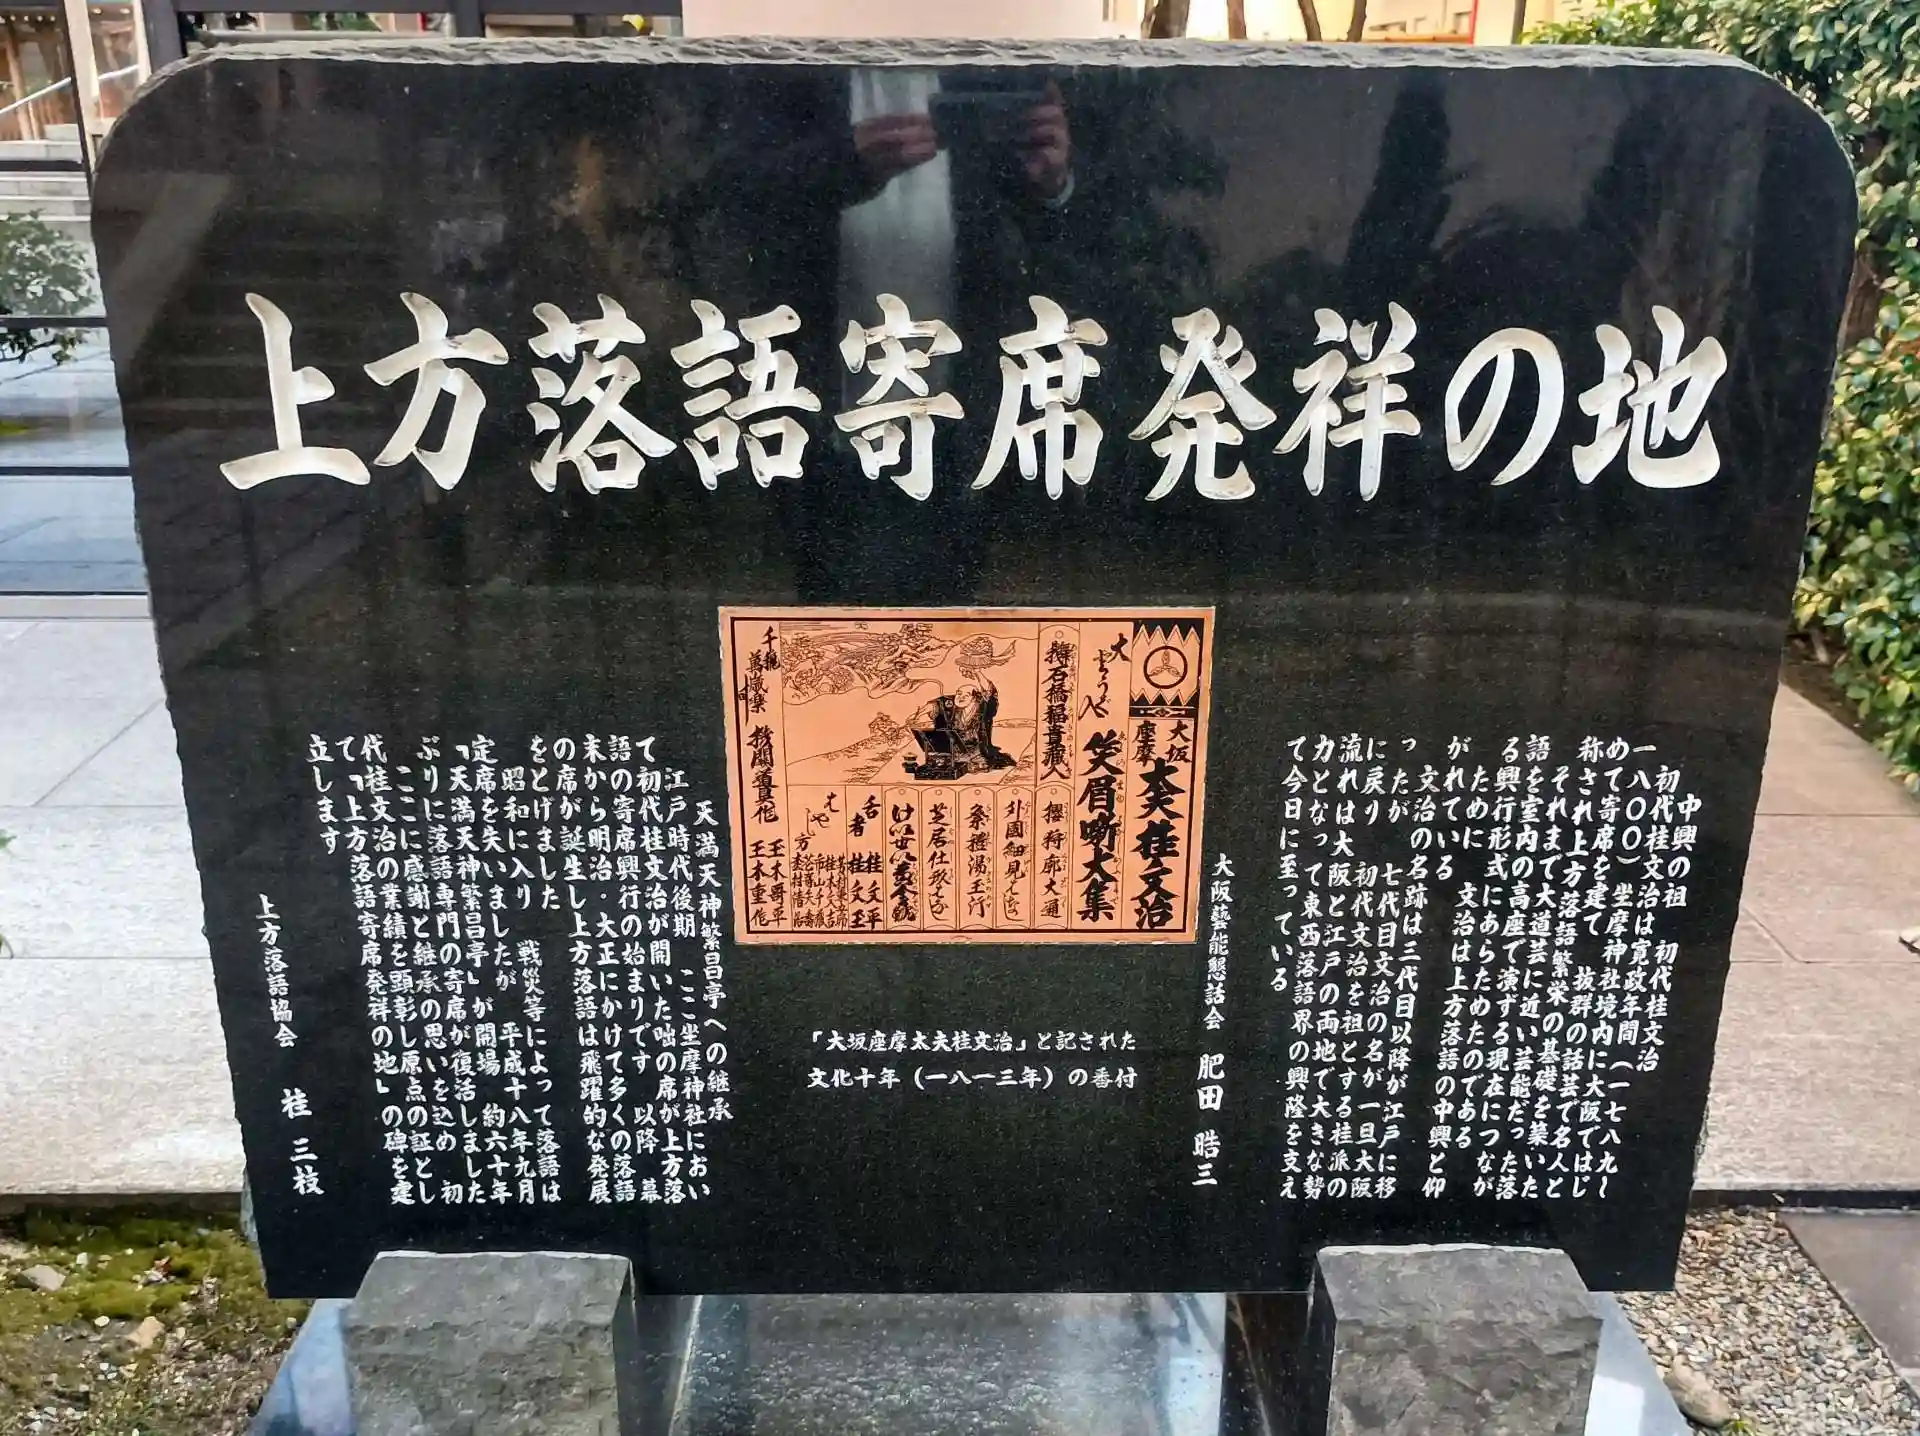 上方落語寄席発祥の地
中興の祖　初代桂文治
初代桂文治は寛政年間（一七八九～
一八〇〇）坐摩神社境内に大阪ではじ
めて寄席を建て　抜群の話芸で名人と
称され上方落語繁栄の基礎を築いた
それまで大道芸に近い芸能だった落
語を室内の高座で演ずる現在につなが
る興行形式にあらためたのである
ために　文治は上方落語の中興と仰
がれている
文治の名跡は三代目以降が江戸に移
ったが　七代目文治の名が一旦大阪
に戻り　初代文治を祖とする桂派の
流れは大阪と江戸の両地で大きな勢
力となって東西落語界の興隆を支え
て今日に至っている
大阪藝能懇話会　肥田　晧三
大坂
座摩
太夫桂文治
大よせ
笑眉噺大集
櫻狩廓大通
外國細見
粂禮湯王行
芝居仕形
舌者
桂文平
桂文玉
千龝萬歳樂
玉木哥平
玉木重作
「大坂座摩太夫桂文治」と記された
文化十年（一八一三年）の番付
天満天神繁昌亭への継承
江戸時代後期　ここ坐摩神社におい
て初代桂文治が開いた咄の席が上方落
語の寄席興行の始まりです　以降　幕
末から明治・大正にかけて多くの落語
の席が誕生し上方落語は飛躍的な発展
をとげました
昭和に入り　戦災等によって落語は
定席を失いましたが　平成十八年九月
「天満天神繁昌亭」が開場　約六十年
ぶりに落語専門の寄席が復活しました
ここに感謝と継承の思いを込め　初
代桂文治の業績を顕彰し原点の証とし
て「上方落語寄席発祥の地」の碑を建
立します
上方落語協会　桂　三枝